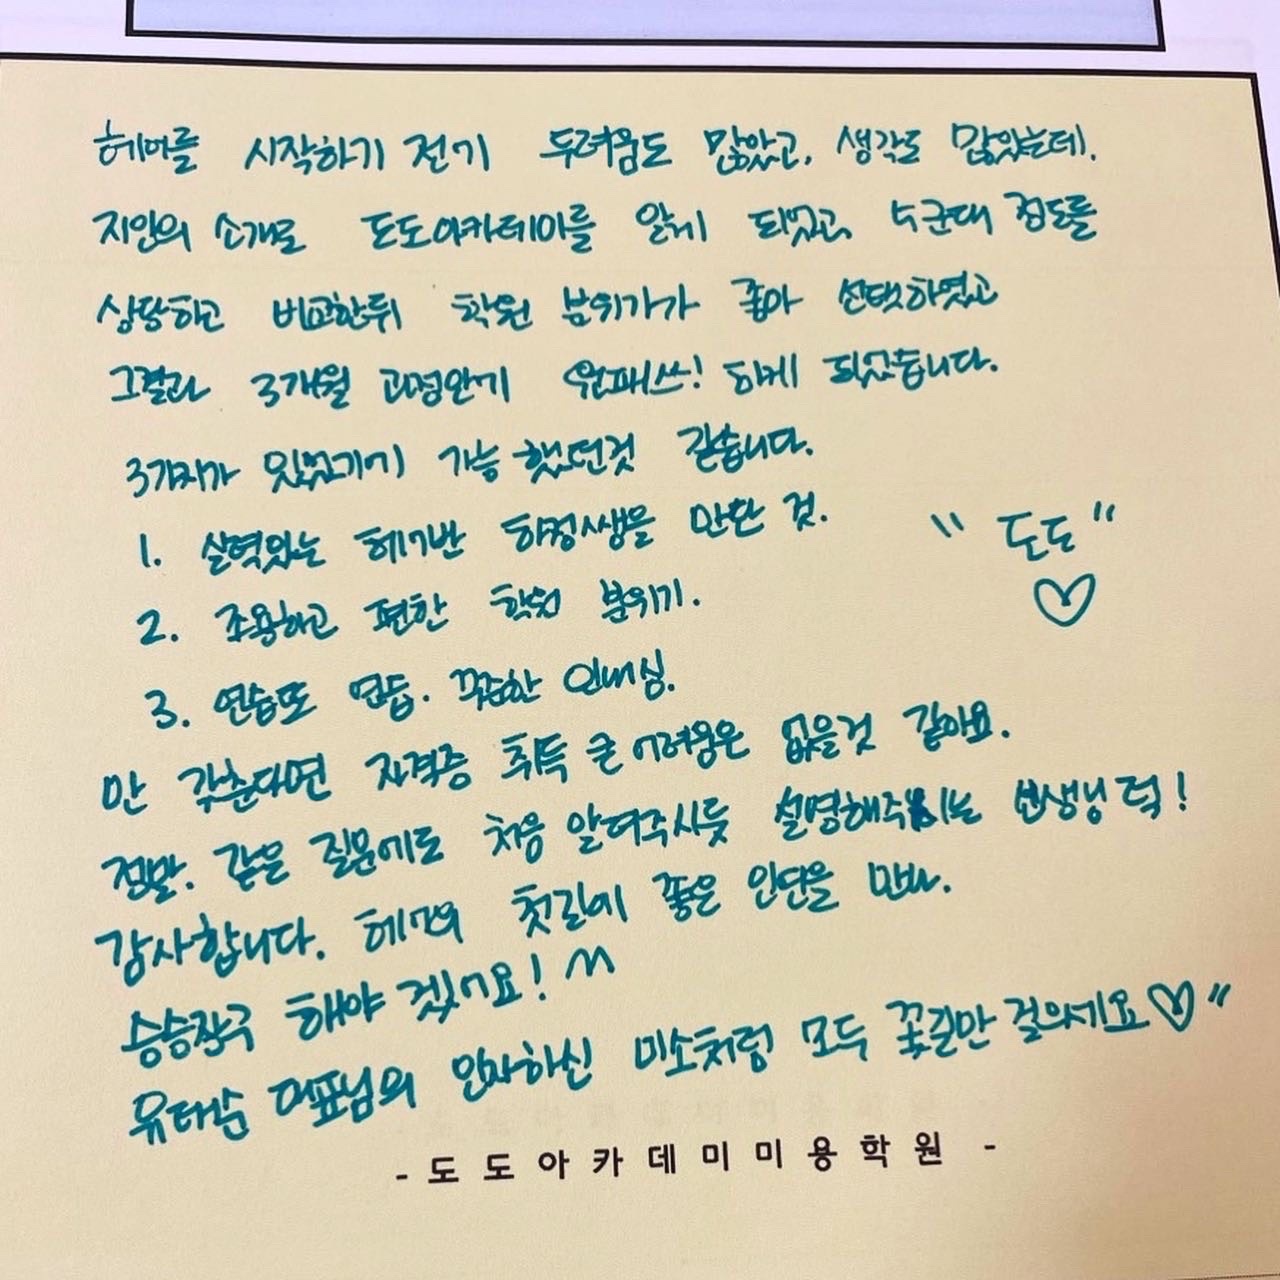 헤어를 시작하기 전에 두려움도 많았고, 생각도 많았는데.
지인의 소개로 도도아카데미를 알게 되었고, 누군대 정도를
상담하고 비교한뒤 학원 분위가가 좋아 선택하였고
그결과 3개월 과정안에 원패쓰! 하게 되었습니다.
3가지가 있었기에 가능했던것 같습니다.
1. 실력있는 헤어반 하정쌤을 만난 것.
2. 조용하고 편한 학원 분위기.
3. 연습또 연습. 꾸준한 인내심.
"도도" ♡
만 갖춘다면 자격증 취득 큰 어려움은 없을것 같아요.
정말. 같은 질문에도 처음 알려주시듯 설명해주시는 선생님 덕!
감사합니다. 헤어의 첫길에 좋은 인연을 만나.
승승장구 해야 겠어요! ^^
유태순 대표님의 인자하신 미소처럼 모두 꽃길만 걸으세요♡"
- 도도아카데미미용학원 -